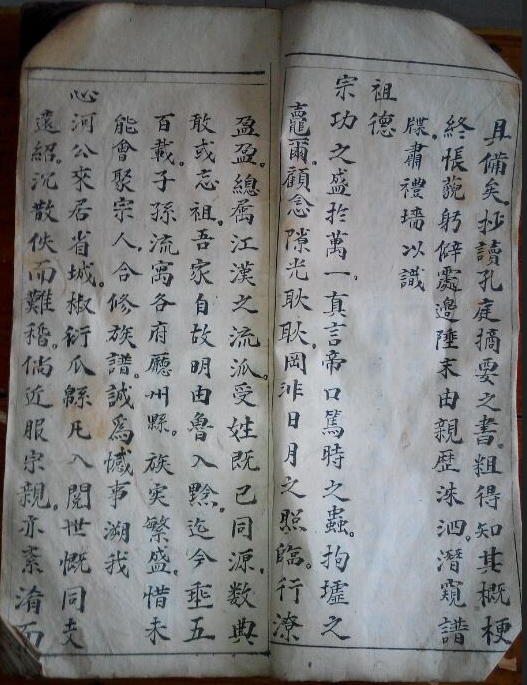 具備矣。抄讀孔庭摘要之書。粗得知其概梗
終悵藐躬僻處邊陲末由親歷洙泗。潛窺譜
牒。肅禮墻以識
祖德
宗功之盛於萬一。真言帝口篤時之蟲。拘墟之
竈爾。顧念隙光耿耿。罔非日月之照臨。行潦
盈盈。總属江漢之流派。受姓既已同源。数典
敢或忘祖。吾家自故明由魯入黔。迄今垂五
百載。子孫流寓各府廳州縣。族实繁盛。惜未
能會聚宗人。合修族譜。誠爲憾事溯我
心河公來居省城。椒衍瓜緜凡入閱世慨同支
遠紹。沉散佚而難稽。倘近服宗親。亦紊淆而